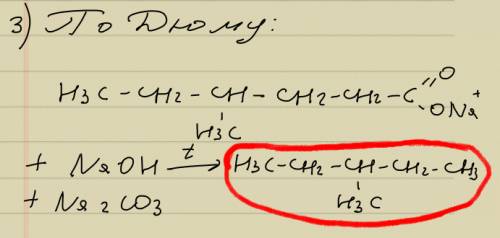 3) По Дюму:
H3C – CH2 – CH – CH2 – CH2 – C =O
ONa+
H3C
+ NaOH t→ H3C – CH2 – CH – CH2 – CH3
+ Na2CO3 H3C